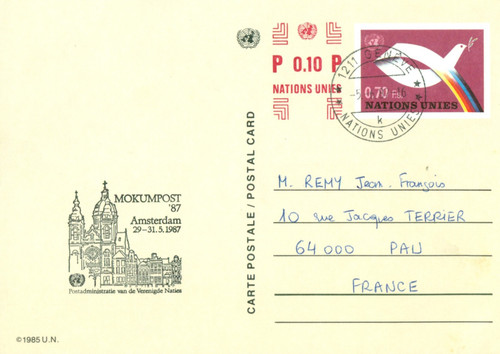 P 0.10 P
NATIONS UNIES
1211 GENÈVE
NATIONS UNIES
k
0,70 F.S.
NATIONS UNIES
CARTE POSTALE / POSTAL CARD
M. REMY Jean-François
10 rue Jacques TERRIER
64000 PAU
FRANCE
MOKUMPOST
'87
Amsterdam
29-31.5.1987
Postadministratie van de Verenigde Naties
©1985 U.N.